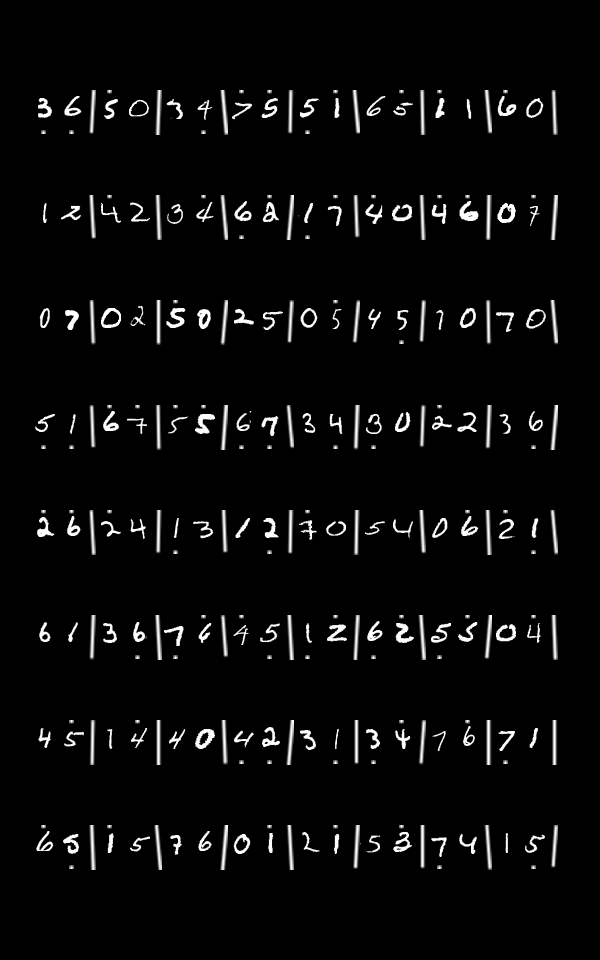 3 6 | 5 0 | 3 4 | 7 5 | 5 1 | 6 5 | 1 1 | 6 0 |
1 2 | 4 2 | 3 4 | 6 2 | 1 7 | 4 0 | 4 6 | 0 7 |
0 7 | 0 2 | 5 0 | 2 5 | 0 5 | 4 5 | 7 0 | 7 0 |
5 1 | 6 7 | 5 5 | 6 7 | 3 4 | 3 0 | 2 2 | 3 6 |
2 6 | 2 4 | 1 3 | 1 2 | 7 0 | 5 4 | 0 6 | 2 1 |
6 1 | 3 6 | 7 6 | 4 5 | 1 2 | 6 2 | 5 5 | 0 4 |
4 5 | 1 4 | 4 0 | 4 2 | 3 1 | 3 4 | 7 6 | 7 1 |
6 5 | 1 5 | 7 6 | 0 1 | 2 1 | 5 3 | 7 4 | 1 5 |